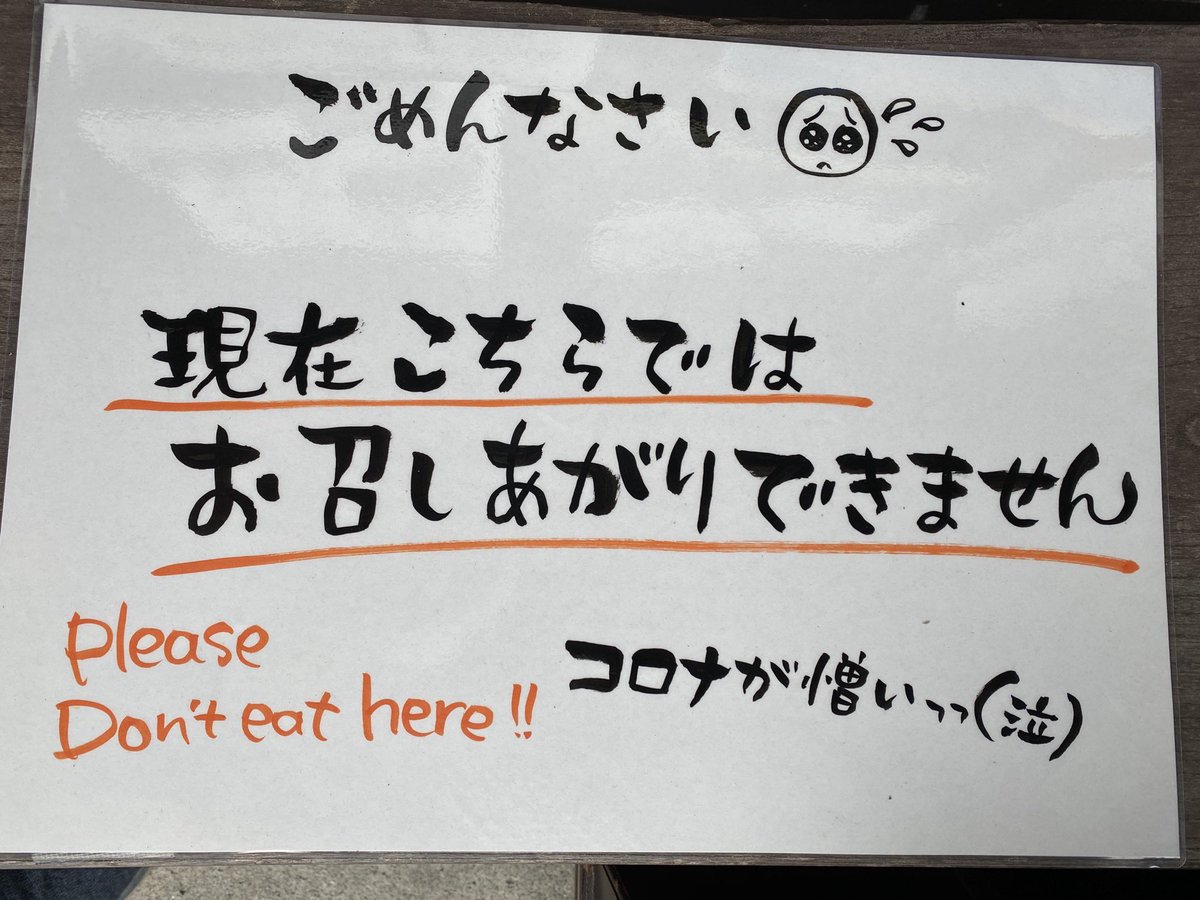 ごめんなさい
現在こちらでは
お召しあがりできません
please
Don't eat here!!
コロナが憎いっっ(泣)